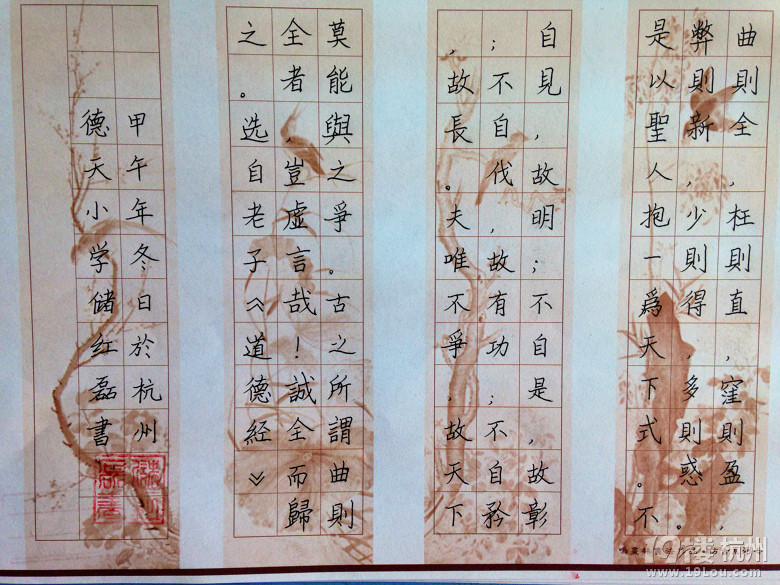 曲則全，枉則直，窪則盈，
弊則新，少則得，多則惑。
是以聖人抱一爲天下式。不
自見，故明；不自是，故彰
；不自伐，故有功；不自矜
，故長。夫唯不爭，故天下
莫能與之爭。古之所謂曲則
全者，豈虛言哉！誠全而歸
之。选自老子《道德經》
甲午年冬日於杭州
德天小学储红磊書
19楼杭州
www.19Lou.com